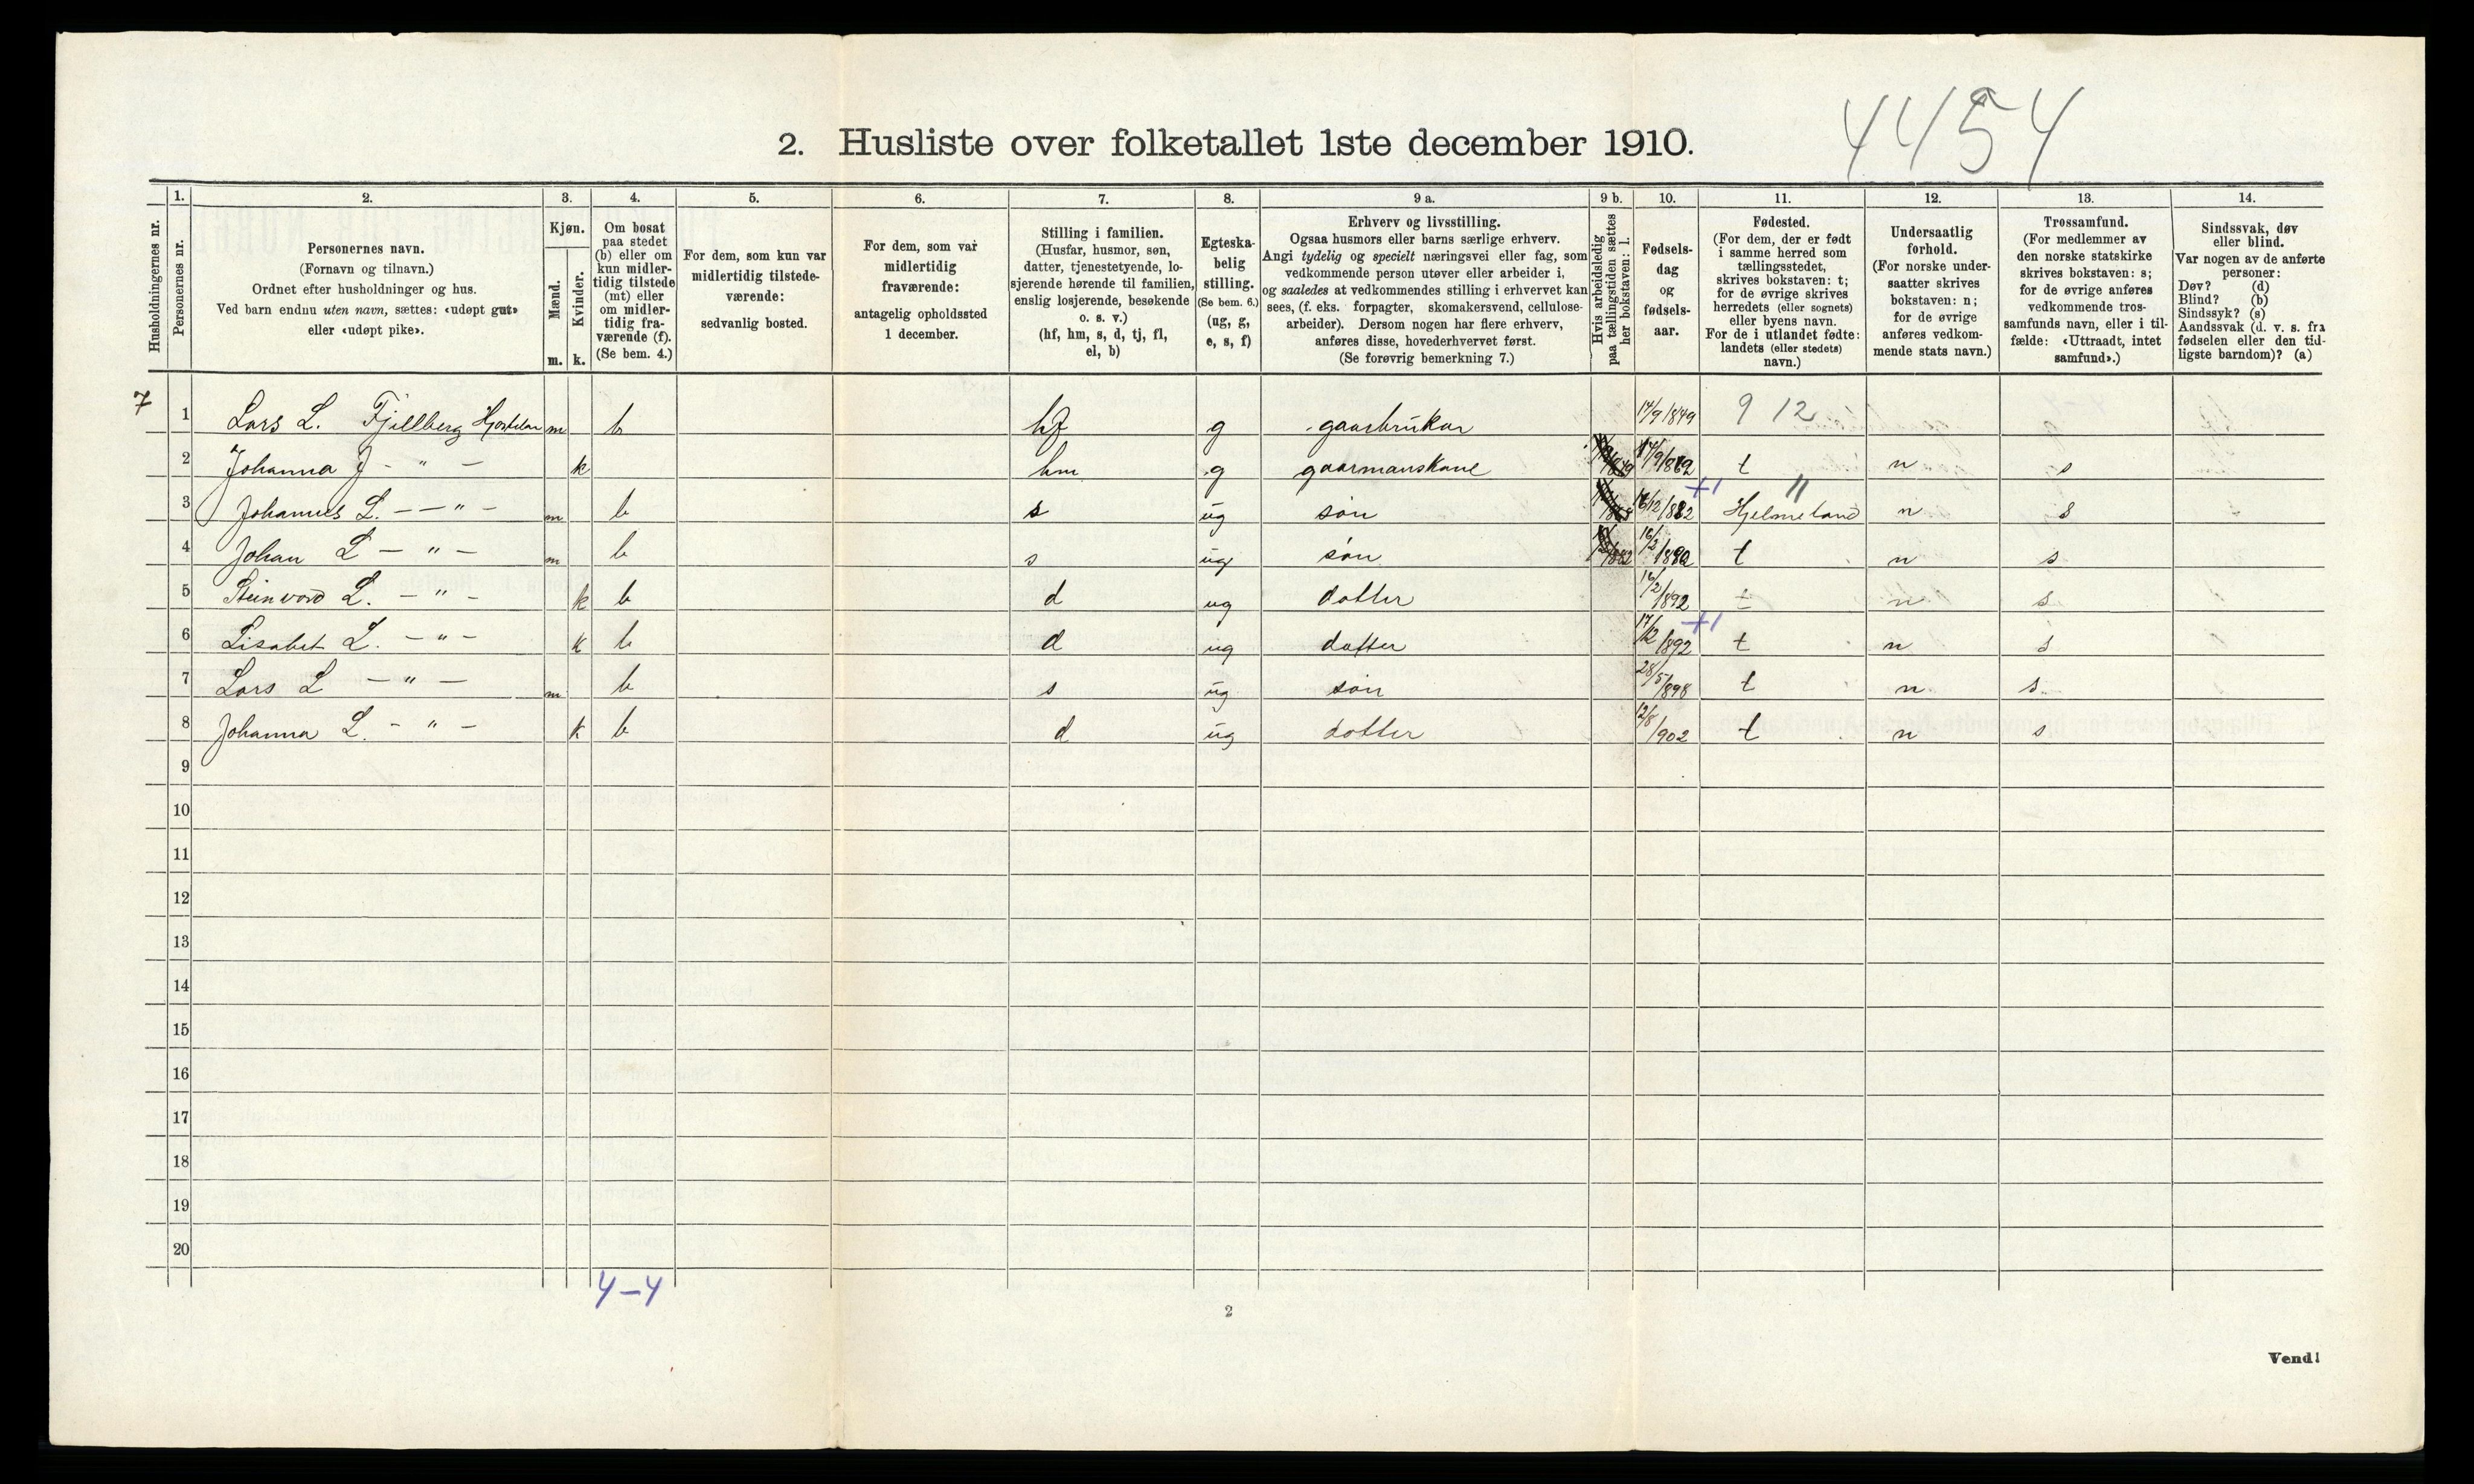 4454
2. Husliste over folketallet 1ste december 1910.
Husholdningernes nr.
1.
Personernes nr.
2.
Personernes navn.
(Fornavn og tilnavn.)
Ordnet efter husholdninger og hus.
Ved barn endnu uten navn, sættes: «udøpt gut»
eller «udøpt pike».
3.
Kjøn.
Mænd.
Kvinder.
m. k.
4.
Om bosat
paa stedet
(b) eller om
kun midler-
tidig tilstede
(mt) eller
om midler-
tidig fra-
værende (f).
(Se bem. 4.)
5.
For dem, som kun var
midlertidig tilstede-
værende:
sedvanlig bosted.
6.
For dem, som var
midlertidig
fraværende:
antagelig opholdssted
1 december.
7.
Stilling i familien.
(Husfar, husmor, søn,
datter, tjenestetyende, lo-
sjerende hørende til familien,
enslig losjerende, besøkende
o. s. v.)
(hf, hm, s, d, tj, fl,
el, b)
8.
Egteska-
belig
stilling.
(Se bem. 6.)
(ug, g,
e, s, f)
9 a.
Erhverv og livsstilling.
Ogsaa husmors eller barns særlige erhverv.
Angi tydelig og specielt næringsvei eller fag, som
vedkommende person utøver eller arbeider i,
og saaledes at vedkommendes stilling i erhvervet kan
sees, (f. eks. forpagter, skomakersvend, cellulose-
arbeider). Dersom nogen har flere erhverv,
anføres disse, hovederhvervet først.
(Se forøvrig bemerkning 7.)
9 b.
Hvis arbeidsledig
paa tællingstiden sættes
her bokstaven: l.
10.
Fødsels-
dag
og
fødsels-
aar.
11.
Fødested.
(For dem, der er født
i samme herred som
tællingsstedet,
skrives bokstaven: t;
for de øvrige skrives
herredets (eller sognets)
eller byens navn.
For de i utlandet fødte:
landets (eller stedets)
navn.)
12.
Undersaatlig
forhold.
(For norske under-
saatter skrives
bokstaven: n;
for de øvrige
anføres vedkom-
mende stats navn.)
13.
Trossamfund.
(For medlemmer av
den norske statskirke
skrives bokstaven: s;
for de øvrige anføres
vedkommende tros-
samfunds navn, eller i til-
fælde: «Uttraadt, intet
samfund».)
14.
Sindssvak, døv
eller blind.
Var nogen av de anførte
personer:
Døv? (d)
Blind? (b)
Sindssyk? (s)
Aandssvak (d. v. s. fra
fødselen eller den tid-
ligste barndom)? (a)
7 1 Lars L. Fjellberg m b hf g gaarbrukar 14/9 1849 9 12
2 Johanna J - " - k hm g gaarmanskane t n s
3 Johannes L. - - " - m b s ug søn 16/12/1882 +1 11 Hjelmeland n s
4 Johan L - " - m b s ug søn t n s
5 Steinvord L. - " - k b d ug dotter 16/2 1892 t n s
6 Lisabet L. - " - k b d ug dotter 17/12 1892 +1 t n s
7 Lars L - " - m b s ug søn 28/5 1898 t n s
8 Johanna L. - " - k b d ug dotter 12/8 1902 t n s
9
10
11
12
13
14
15
16
17
18
19
20
4-4
2
Vend!